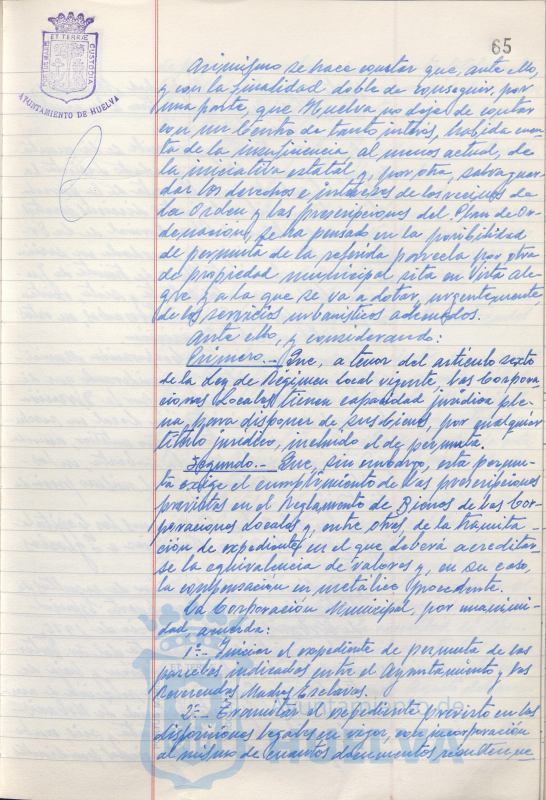 65
PORTUS MARIS ET TERRÆ CUSTODIA
AYUNTAMIENTO DE HUELVA
Asimismo se hace constar que, ante ello,
y con la finalidad doble de conseguir, por
una parte, que Huelva no deje de contar
con un Centro de tanto interés, habida cuen-
ta de la insuficiencia, al menos actual, de
la iniciativa estatal y, por otra, salvaguar-
dar los derechos e intereses de los vecinos de
La Orden y las prescripciones del Plan de Or-
denación, se ha pensado en la posibilidad
de permuta de la referida parcela por otra
de propiedad municipal sita en Vista Ale-
gre y a la que se va a dotar, urgentemente,
de los servicios urbanísticos adecuados.
Ante ello, y considerando:
Primero.- Que, a tenor del artículo sexto
de la Ley de Régimen Local vigente, las Corpora-
ciones Locales tienen capacidad jurídica ple-
na, para disponer de sus bienes, por cualquier
título jurídico, incluido el de permuta.
Segundo.- Que, sin embargo, esta permu-
ta exige el cumplimiento de las prescripciones
previstas en el Reglamento de Bienes de las Cor-
poraciones Locales y, entre otras, de la tramita-
ción de expediente en el que deberá acreditar-
se la equivalencia de valores y, en su caso,
la compensación en metálico procedente.
La Corporación Municipal, por unanimi-
dad, acuerda:
1º.- Iniciar el expediente de permuta de las
parcelas indicadas entre el Ayuntamiento y las
Reverendas Madres Esclavas.
2º.- Tramitar el expediente previsto en las
disposiciones legales en vigor, con incorporación
al mismo de cuantos documentos